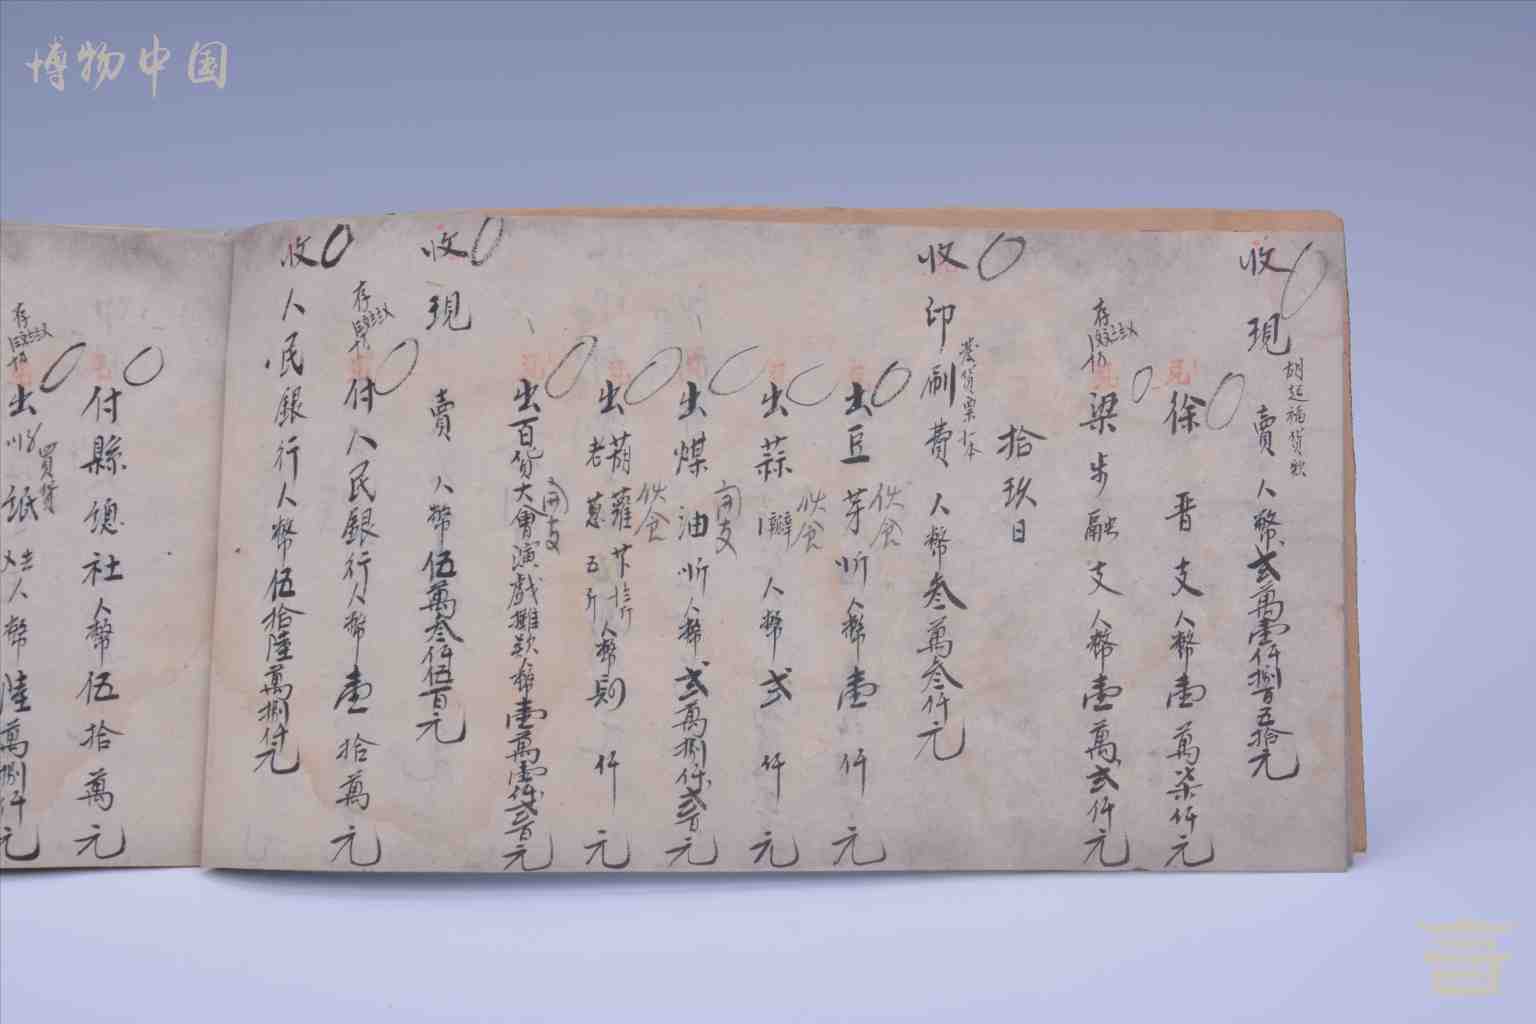 博物中国
收 現 賣 人幣弍萬壹仟捌百五拾元
胡廷福貨款
徐晋支人幣壹萬柒仟元
梁步融支人幣壹萬弍仟元
拾玖日
收 印刷費 人幣叁萬叁仟元
出豆芽 人幣壹仟元
伙食
出蒜 人幣弍仟元
伙食
出煤油 人幣弍萬捌仟弍百元
開支
出葫蘿
老蔥五斤
人幣 仟元
伙食
出百貨大會演戲攤款幣壹萬壹仟弍百元
開支
收 現 賣 人幣伍萬叁仟伍百元
付人民銀行人幣壹拾萬元
收 人民銀行人幣伍拾陸萬捌仟元
付縣總社人幣伍拾萬元
出 紙 人幣陸萬捌仟元
買貨